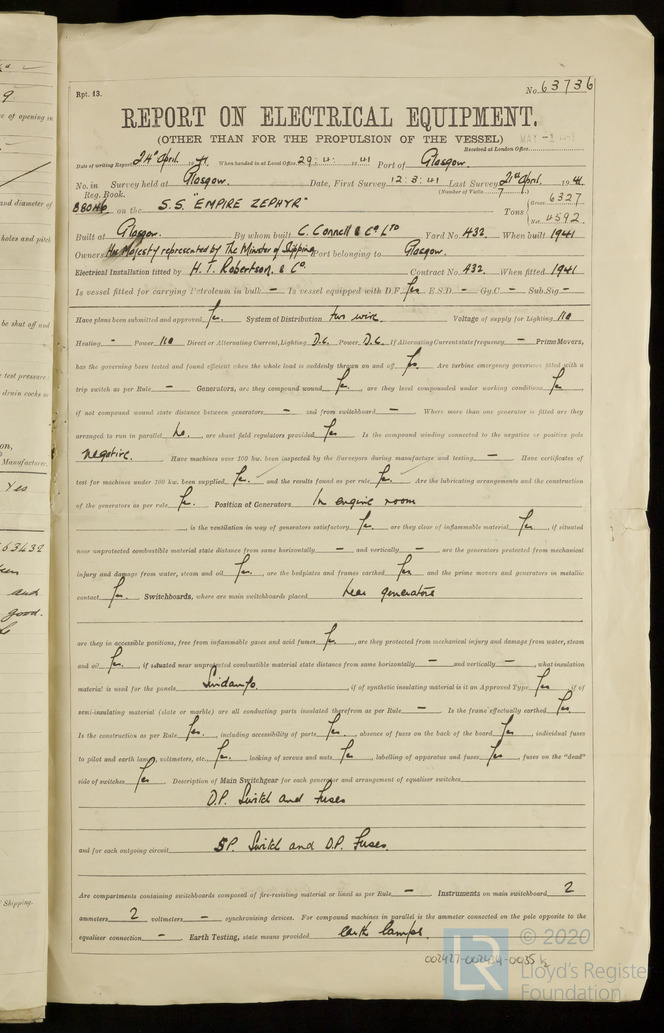 Rpt. 13.
No. 63736
REPORT ON ELECTRICAL EQUIPMENT.
(OTHER THAN FOR THE PROPULSION OF THE VESSEL)
Received at London Office
Date of writing Report 24th April 1941 When handed in at Local Office 29. 4. 41 Port of Glasgow.
No. in Survey held at Glasgow. Date, First Survey 12.3.41 Last Survey 21st April 1941
Reg. Book. (Number of Visits 7)
on the S.S. "EMPIRE ZEPHYR" Tons { Gross 6327
Net 4592
Built at Glasgow. By whom built C. Connell & Co. Ltd Yard No. 432. When built 1941
Owners His Majesty represented by The Minister of Shipping Port belonging to Glasgow.
Electrical Installation fitted by H. T. Robertson. & Co. Contract No. 432. When fitted 1941
Is vessel fitted for carrying Petroleum in bulk - Is vessel equipped with D.F. Yes E.S.D. - Gy.C. - Sub.Sig. -
Have plans been submitted and approved Yes. System of Distribution two wire. Voltage of supply for Lighting 110
Heating - Power 110 Direct or Alternating Current, Lighting D.C. Power D.C. If Alternating Current state frequency - Prime Movers,
has the governing been tested and found efficient when the whole load is suddenly thrown on and off Yes. Are turbine emergency governors fitted with a
trip switch as per Rule - Generators, are they compound wound Yes, are they level compounded under working conditions Yes,
if not compound wound state distance between generators - and from switchboard - Where more than one generator is fitted are they
arranged to run in parallel No., are shunt field regulators provided Yes Is the compound winding connected to the negative or positive pole
negative. Have machines over 100 kw. been inspected by the Surveyors during manufacture and testing - Have certificates of
test for machines under 100 kw. been supplied Yes. and the results found as per rule Yes. Are the lubricating arrangements and the construction
of the generators as per rule Yes. Position of Generators In engine room
, is the ventilation in way of generators satisfactory Yes, are they clear of inflammable material Yes, if situated
near unprotected combustible material state distance from same horizontally - and vertically - are the generators protected from mechanical
injury and damage from water, steam and oil Yes, are the bedplates and frames earthed Yes and the prime movers and generators in metallic
contact Yes. Switchboards, where are main switchboards placed Near generators
are they in accessible positions, free from inflammable gases and acid fumes Yes, are they protected from mechanical injury and damage from water, steam
and oil Yes, if situated near unprotected combustible material state distance from same horizontally - and vertically -, what insulation
material is used for the panels Sindanyo., if of synthetic insulating material is it an Approved Type Yes, if of
semi-insulating material (slate or marble) are all conducting parts insulated therefrom as per Rule - Is the frame effectually earthed Yes.
Is the construction as per Rule Yes., including accessibility of parts Yes, absence of fuses on the back of the board Yes, individual fuses
to pilot and earth lamps, voltmeters, etc. Yes. locking of screws and nuts Yes, labelling of apparatus and fuses Yes, fuses on the "dead"
side of switches Yes Description of Main Switchgear for each generator and arrangement of equaliser switches
D.P. Switch and Fuses
and for each outgoing circuit S.P. Switch and D.P. Fuses.
Are compartments containing switchboards composed of fire-resisting material or lined as per Rule - Instruments on main switchboard 2
ammeters 2 voltmeters - synchronising devices. For compound machines in parallel is the ammeter connected on the pole opposite to the
equaliser connection - Earth Testing, state means provided earth lamps.
LR © 2020
Lloyd's Register
Foundation